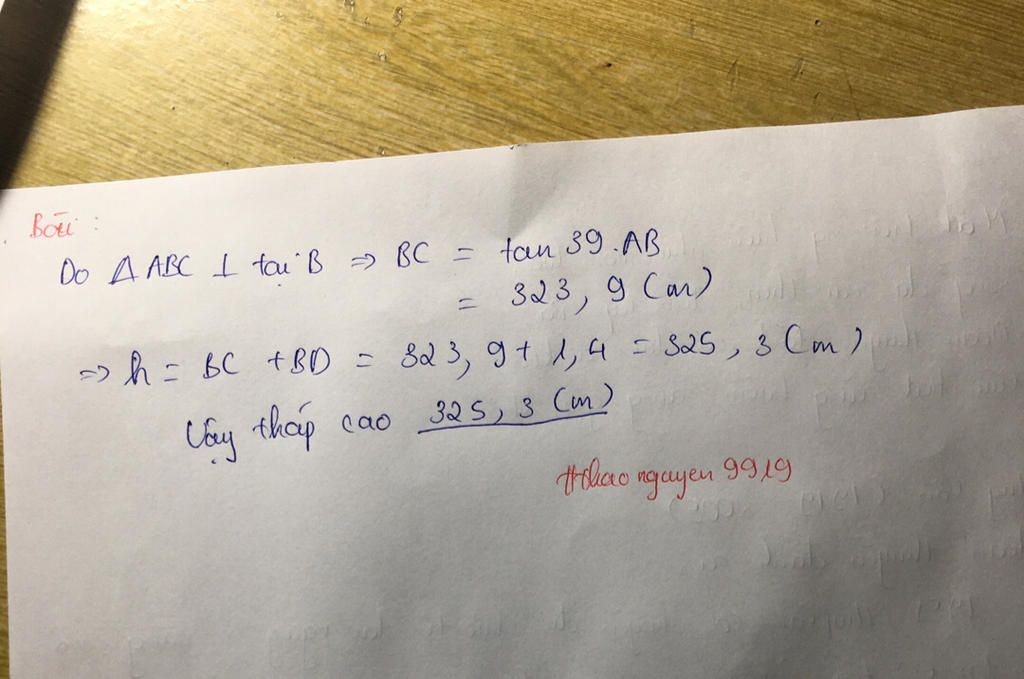 Bài :
Do Δ ABC ⊥ tại B => BC = tan 39 . AB
= 323,9 (m)
=> h = BC + BD = 323,9 + 1,4 = 325,3 (m)
Vậy tháp cao 325,3 (m)
#thaonguyen9919